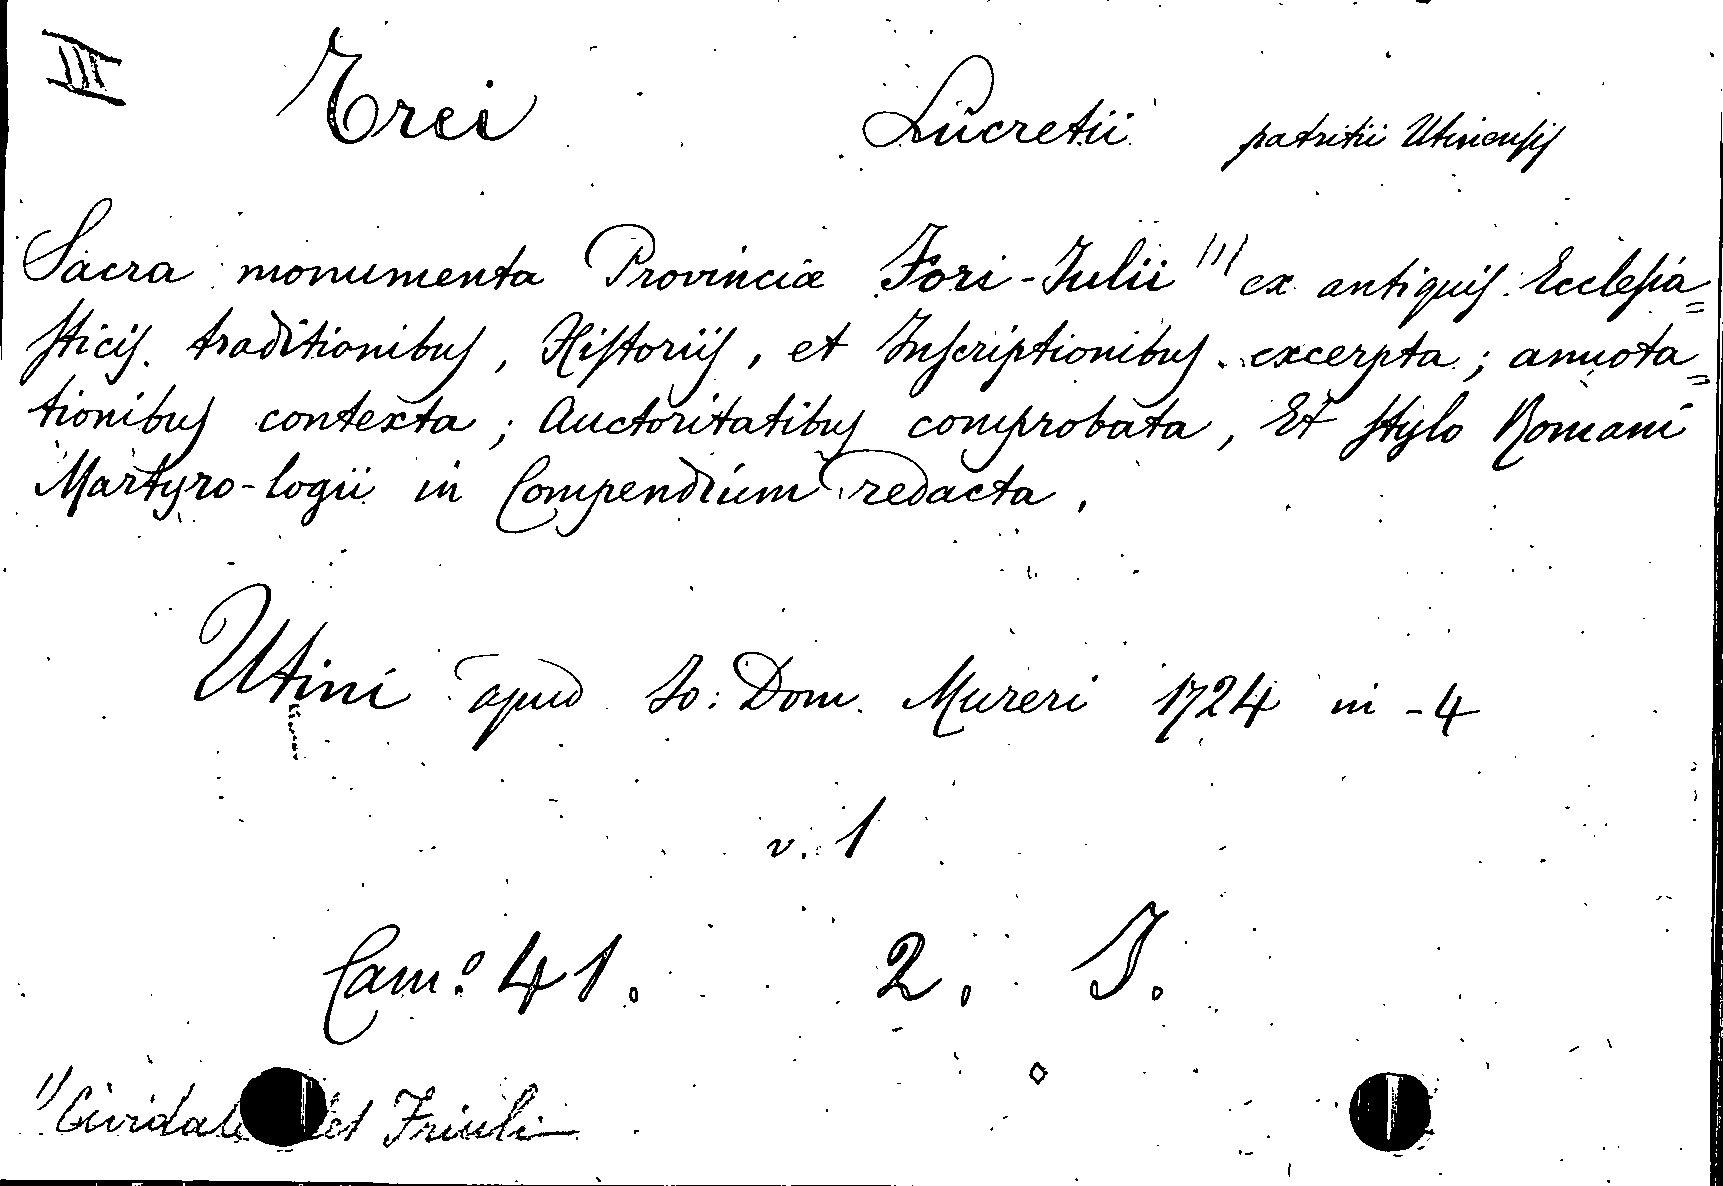 III Trei Lucretii patritii Utinensis
Sacra monumenta Provinciæ Fori-Julii 1) ex antiquis Ecclesia=
sticis traditionibus, Historiis, et Inscriptionibus excerpta; annota=
tionibus contexta; Auctoritatibus comprobata, Et stylo Romani
Martyro-logii in Compendium redacta.
Utini apud Jo: Dom. Mureri 1724 in -4
v. 1
Cam:º 41. 2. J.
1) Cividale del Friuli